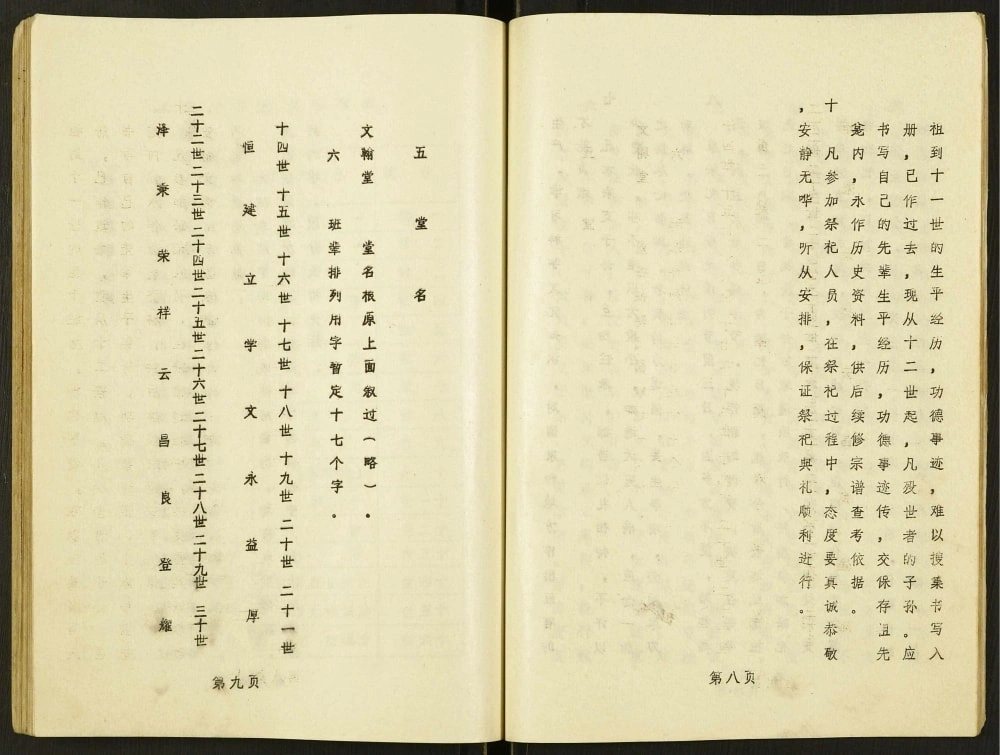 祖到十一世的生平经历,功德事迹,难以搜集书写入
册,已作过去,现从十二世起,凡殁世者的子孙。应
书写自己的先辈生平经历,功德事迹传,交保存且先
龛内,永作历史资料,供后续修宗谱查考依据。
十 凡参加祭祀人员,在祭祀过程中,态度要真诚恭敬
,安静无哗,听从安排,保证祭祀典礼顺利进行。
第八页
五 堂 名
文翰堂 堂名根原上面叙过(略)。
六 班辈排列用字暂定十七个字。
十四世 十五世 十六世 十七世 十八世 十九世 二十世 二十一世
恒 建 立 学 文 永 益 厚
二十二世 二十三世 二十四世 二十五世 二十六世 二十七世 二十八世 二十九世 三十世
泽 秉 荣 祥 云 昌 良 登 耀
第九页